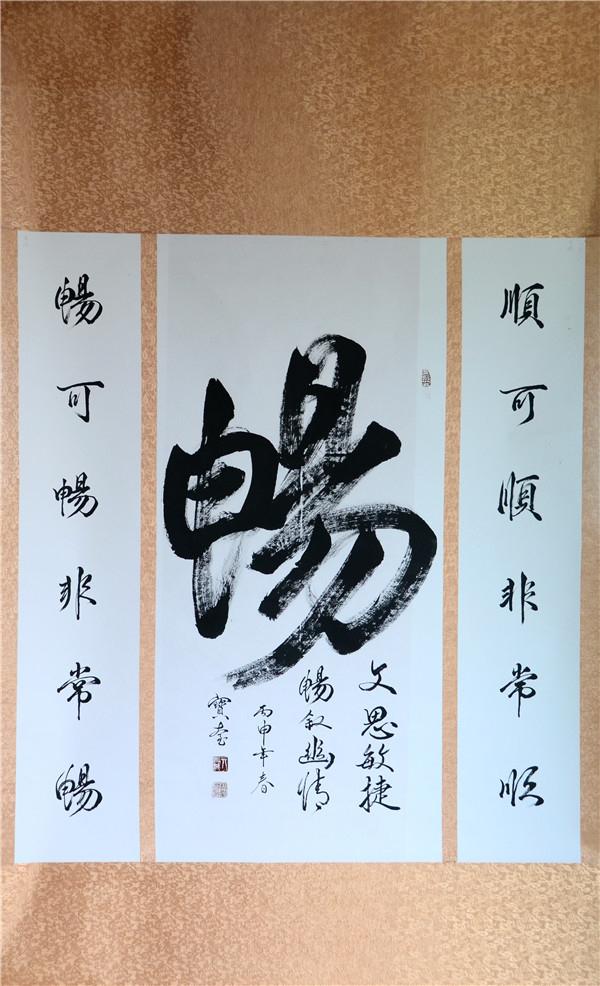 順可順非常順
暢
文思敏捷
暢叙幽情
丙申年春
寶奎
暢可暢非常暢